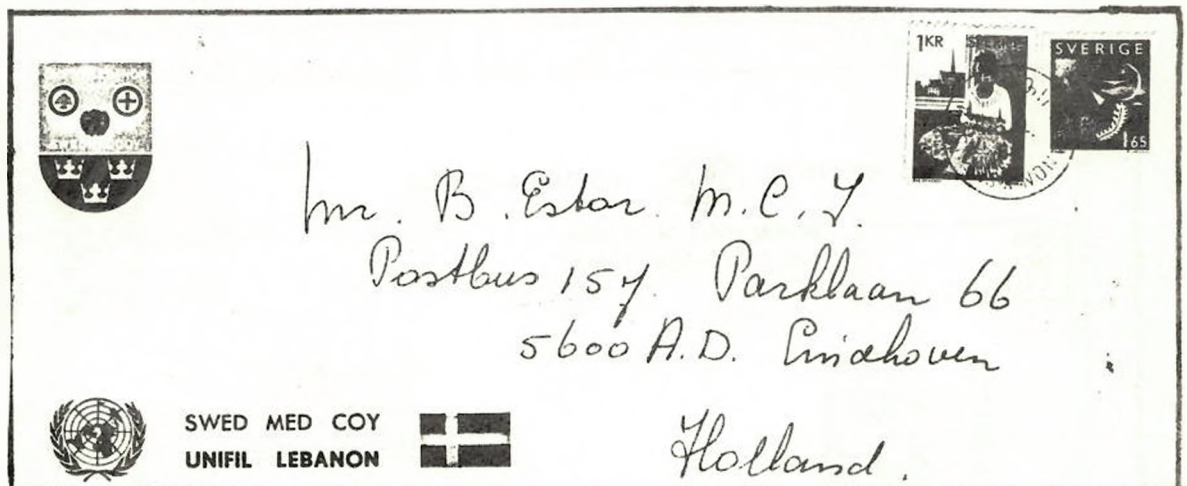 1KR
SVERIGE
165
Mr. B. Estor. M.C.Y.
Postbus 157. Parklaan 66
5600 A.D. Eindhoven
Holland.
SWED MED COY
UNIFIL LEBANON